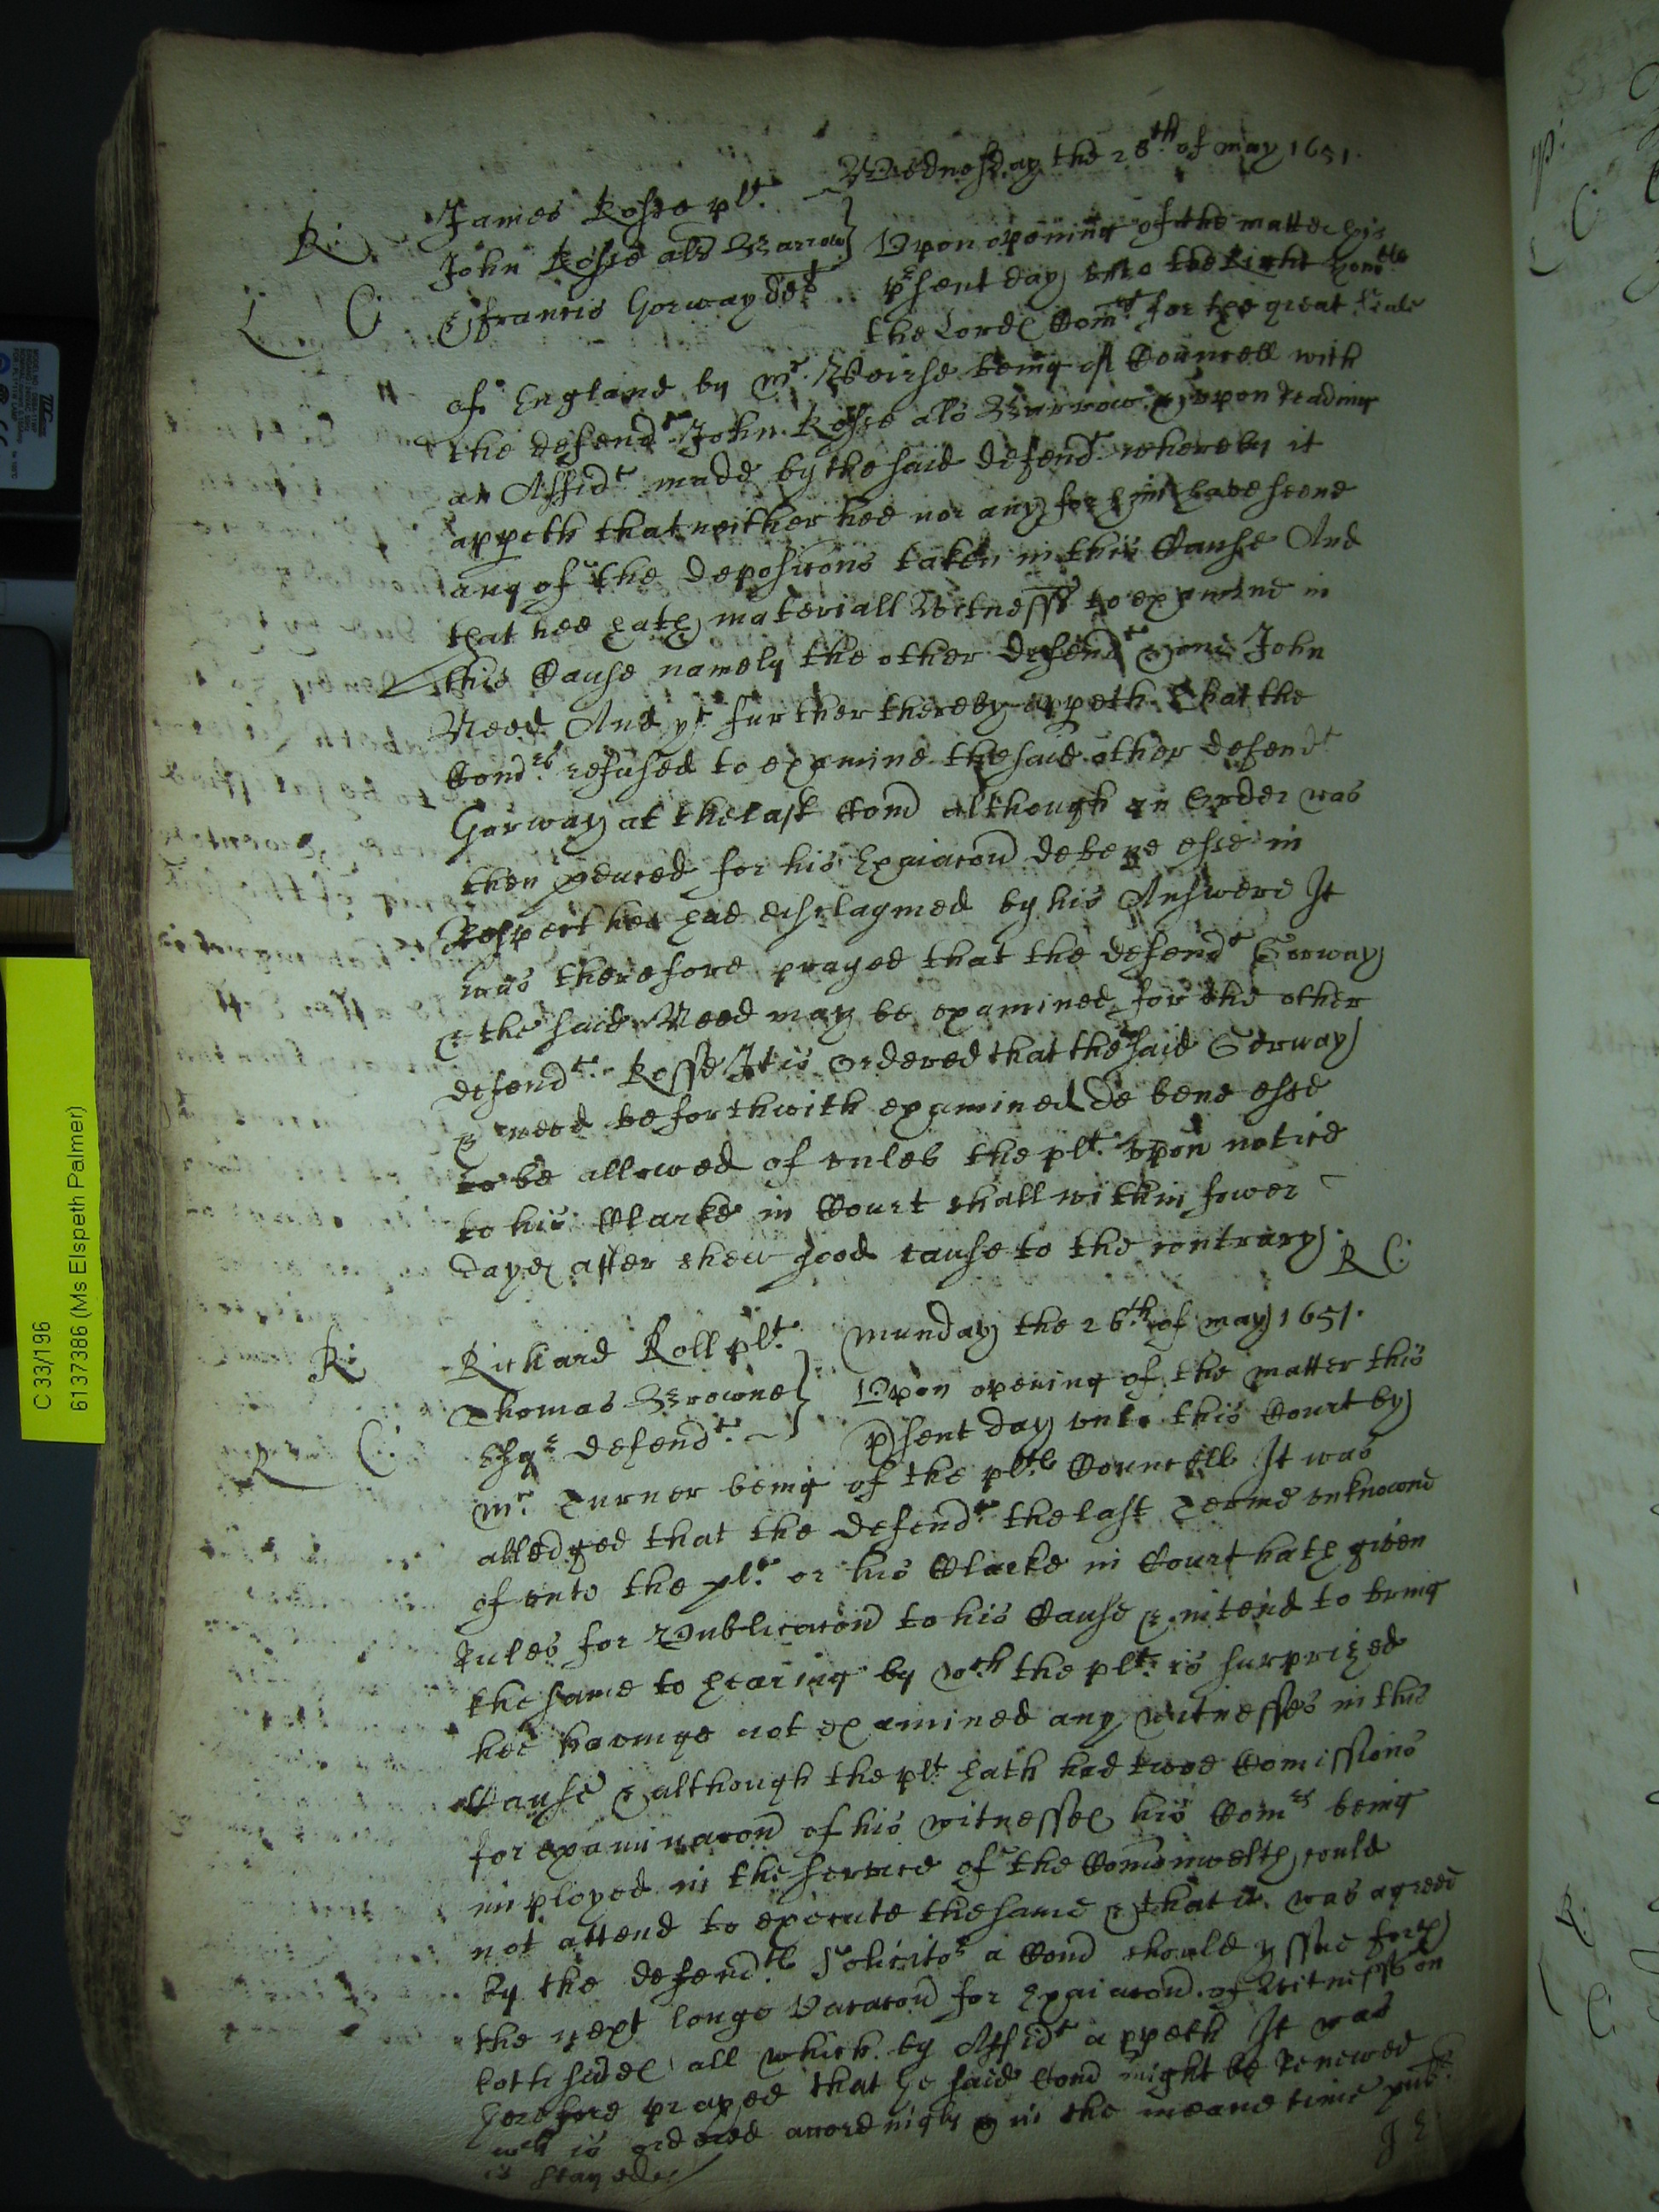 Wednesday the 28th of may 1651.
R: James Rosse plt.
John Rosse als Barrow } Upon opening of the matter this
L C: & francis Gorway deft p̱sent day unto the Right honoble
the Lordes Comrs for the great Seale
of England by mr. being of Councell with
the defendt John Rosse als Barrow & upon reading
an Affidt made by the said defendt whereby it
appeth that neither hee nor any for him have seene
any of the deposicons taken in this Cause And
that hee hath materiall Witnesses to examine in
this Cause namely the other defendt & one John
Need And yt further thereby appeth that the
Comrs refused to examine the said other defendt
Gorway at the last Com̄ although an Order was
then p̱cured for his Exa͞iacon de bene esse in
Respect hee had disclaymed by his Answere It
was therefore prayed that the defendt Gorway
& the said Need may be examined for the other
defendt. Rosse It is Ordered that the said Gorway
& need be forthwith examined de bene esse
to be allowed of unles the plt. upon notice
to his Clarke in Court shall within fower
dayes after shew good cause to the contrary.
R C:
R: Richard Roll plt. Munday the 26th of may 1651.
Thomas Browne } Upon opening of the matter this
R C: Esqr defendt. p̱sent day unto this Court by
mr. Turner being of the plts Councell It was
alledged that the defendt the last Terme unknowne
of unto the plt. or his Clarke in Court hath given
Rules for Publicacon to his Cause & intend to bring
the same to hearing by wch the plt. is surprized
hee haveinge not examined any witnesses in this
Cause & although the plt hath had twoe Comissions
for examinacon of his witnesses his Comrs being
imployed in the service of the Comonwelth could
not attend to execute the same & that it was agreed
by the defendts Solicitor a Com̄ should yssue forth
the next longe Vacacon for Exa͞iacon of Witnesses on
both sides all which by Affidt appeth It was
therefore prayed that the said Com̄ might be Renewed
wch is ordered accordingly & in the meane time pub:
is stayed./
C 33/196
6137386 (Ms Elspeth Palmer)